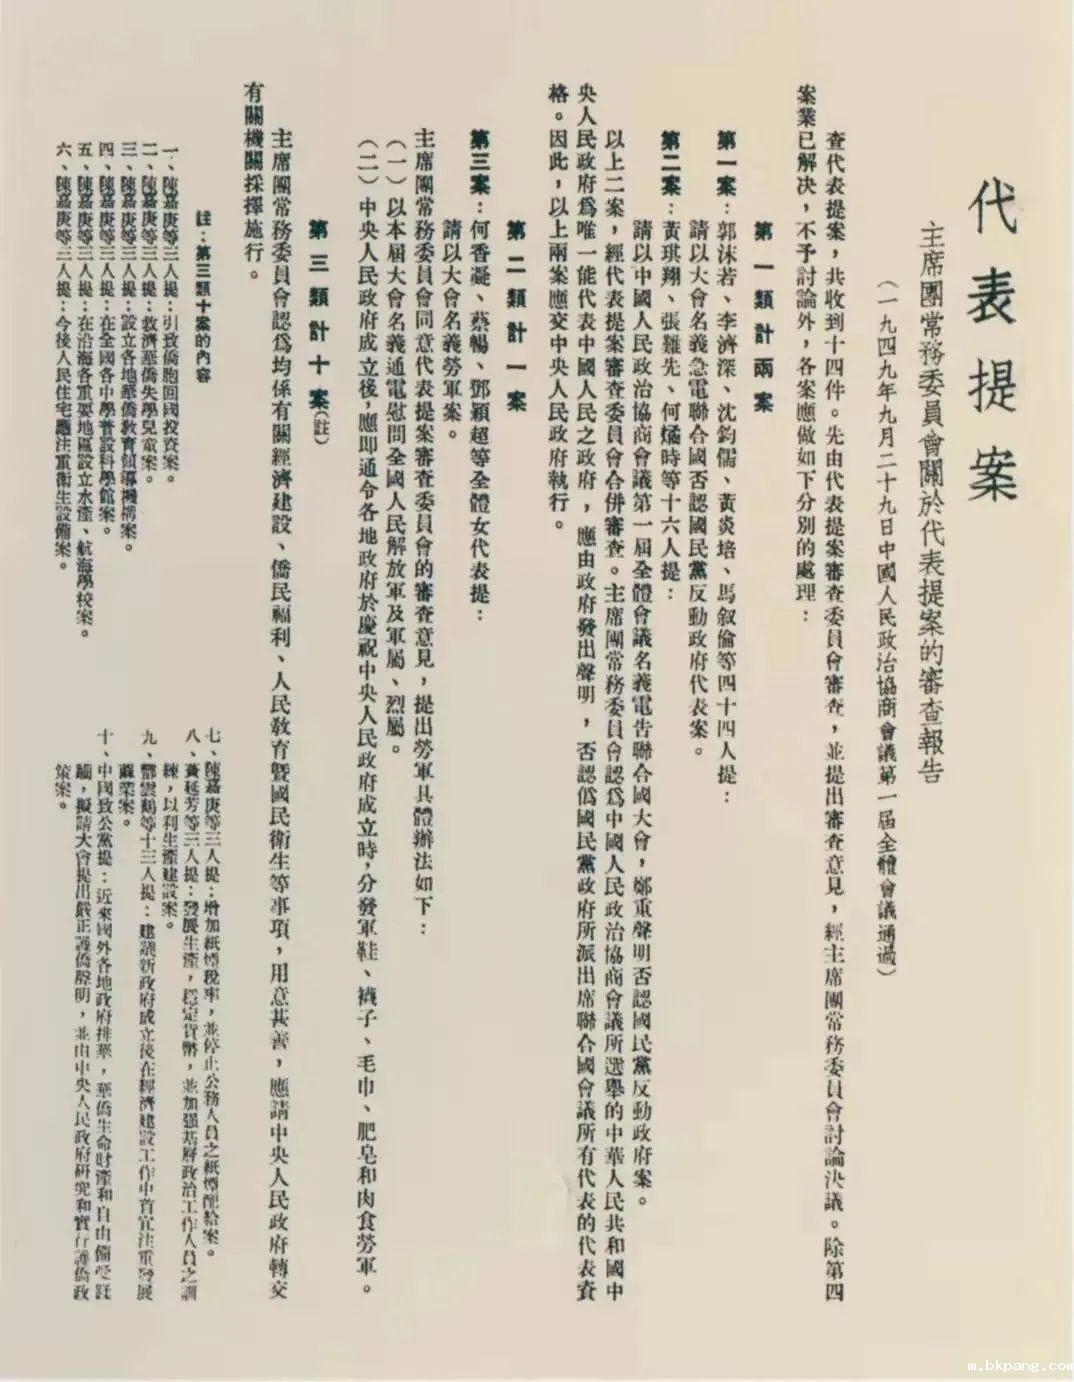 代表提案
主席團常務委員會關於代表提案的審查報告
(一九四九年九月二十九日中國人民政治協商會議第一屆全體會議通過)
查代表提案，共收到十四件。先由代表提案審查委員會審查，並提出審查意見，經主席團常務委員會討論決議。除第四
案業已解決，不予討論外，各案應做如下分別的處理：
第一類計兩案
第一案：郭沫若、李濟深、沈鈞儒、黃炎培、馬叙倫等四十四人提：
請以大會名義急電聯合國否認國民黨反動政府代表案。
第二案：黃琪翔、張難先、何燏時等十六人提：
請以中國人民政治協商會議第一屆全體會議名義電告聯合國大會，鄭重聲明否認國民黨反動政府案。
以上二案，經代表提案審查委員會合併審查。主席團常務委員會認爲中國人民政治協商會議所選舉的中華人民共和國中
央人民政府爲唯一能代表中國人民之政府，應由政府發出聲明，否認僞國民黨政府所派出席聯合國會議所有代表的代表資
格。因此，以上兩案應交中央人民政府執行。
第二類計一案
第三案：何香凝、蔡暢、鄧穎超等全體女代表提：
請以大會名義勞軍案。
主席團常務委員會同意代表提案審查委員會的審查意見，提出勞軍具體辦法如下：
(一)以本屆大會名義通電慰問全國人民解放軍及軍屬、烈屬。
(二)中央人民政府成立後，應即通令各地政府於慶祝中央人民政府成立時，分發軍鞋、襪子、毛巾、肥皂和肉食勞軍。
第三類計十案(註)
主席團常務委員會認爲均係有關經濟建設、僑民福利、人民敎育暨國民衛生等事項，用意甚善，應請中央人民政府轉交
有關機關採擇施行。
註：第三類十案的內容
一、陳嘉庚等三人提：引致僑胞回國投資案。
二、陳嘉庚等三人提：救濟華僑失學兒童案。
三、陳嘉庚等三人提：設立各地華僑敎育領導機構案。
四、陳嘉庚等三人提：在全國各中學普設科學館案。
五、陳嘉庚等三人提：在沿海各重要地區設立水產、航海學校案。
六、陳嘉庚等三人提：今後人民住宅應注重衛生設備案。
七、陳嘉庚等三人提：增加紙煙稅率，並停止公務人員之紙煙配給案。
八、黃延芳等三人提：發展生產，穩定貨幣，並加强基層政治工作人員之訓
練，以利生產建設案。
九、鄧雲鶴等十三人提：建議新政府成立後在經濟建設工作中首宜注重發展
蠶業案。
十、中國致公黨提：近來國外各地政府排華，華僑生命財產和自由備受蹂
躪，擬請大會提出嚴正護僑聲明，並由中央人民政府研究和實行護僑政
策案。
m.bkpang.com